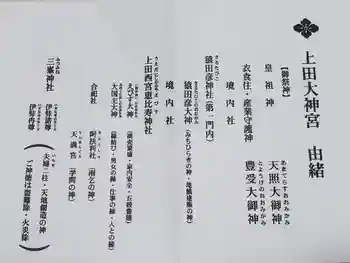 上田大神宮 由緒
【御祭神】
皇祖神 天照大御神
あまてらすおおみかみ
衣食住・産業守護神 豊受大御神
とようけのおおみかみ
境内社
さるたひこ
猿田彦神社(第一門内)
猿田彦大神(みちひらきの神・地鎮建築の神)
境内社
上田西宮恵比寿神社
えびす大神(商売繁盛・家内安全・五穀豊穣)
大国主大神(縁結び・男女の縁・仕事の縁・人との縁)
合祀社
阿扶利社(雨乞の神)
天満宮(学問の神)
みつみね
三峯神社
伊弉諾尊
伊弉冉尊
(夫婦二柱・天地創造の神
ご神徳は盗難除・火災除)